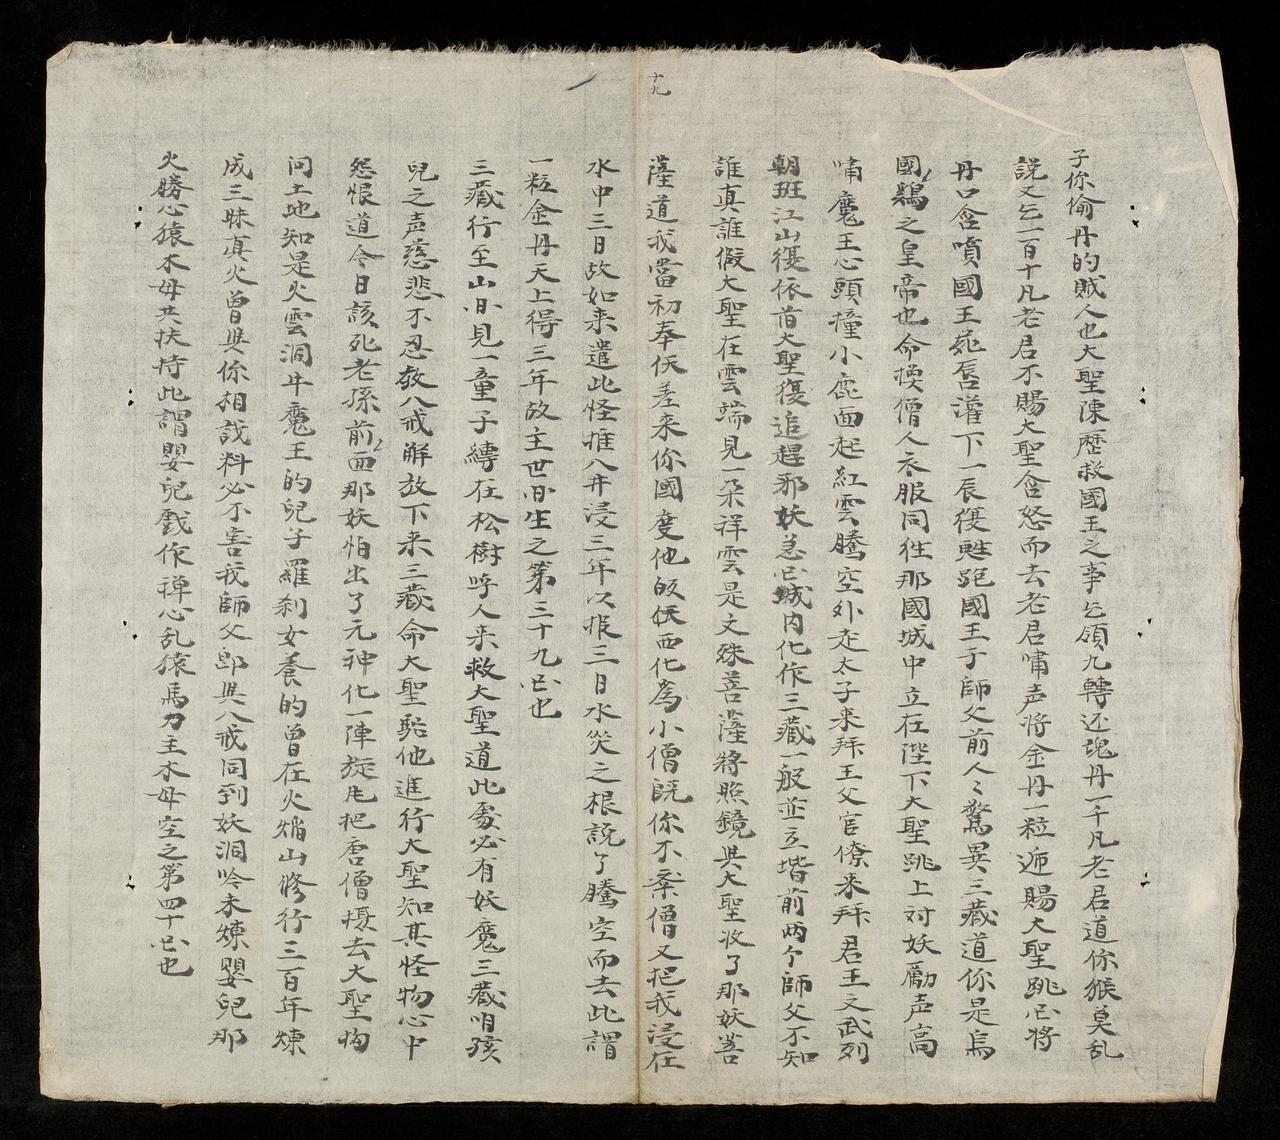 子你偷丹的賊人也大聖陳歷救國王之事乞領九轉还魂丹一千凡老君道你猴莫乱
說又乞一百十凡老君不賜大聖含怒而去老君嘯声将金丹一粒逓賜大聖跳囘将
丹口含噴國王死唇灌下一辰復甦跪國王于師父前人〻驚異三藏道你是烏
國鷄之皇帝也命换僧人衣服同徃那國城中立在陛下大聖跳上对妖勵声高
嘯魔王心頭撞小鹿面起紅雲騰空外走太子来拜王父官僚来拜君王文武列
朝班江山復依首大聖復追趕邪妖急囘城内化作三藏一般並立堦前两个師父不知
誰真誰假大聖在雲端見一朵祥雲是文殊菩薩将照鏡與大聖收了那妖菩
薩道我當初奉仸差来你國度他皈仸西化為小僧既你不案僧又把我浸在
十九
水中三日故如来遣此怪推八井浸三年以报三日水災之根說了騰空而去此謂
一粒金丹天上得三年故主世间生之第三十九囘也
三藏行至山间見一童子縛在松樹呼人来救大聖道此處必有妖魔三藏咱孩
兒之声慈悲不忍教八戒解放下来三藏命大聖駝他進行大聖知其怪物心中
怨恨道今日該死老孫前面那妖怕出了元神化一陣旋风把唐僧摄去大聖拘
问土地知是火雲洞牛魔王的兒子羅刹女养的曾在火焔山修行三百年煉
成三昧真火曾與你相戝料必不害我師父郎與八戒同到妖洞吟未煉嬰兒那
火勝心猿木母共扶持此謂嬰兒戲作禅心乱猿馬力主木母空之第四十囘也